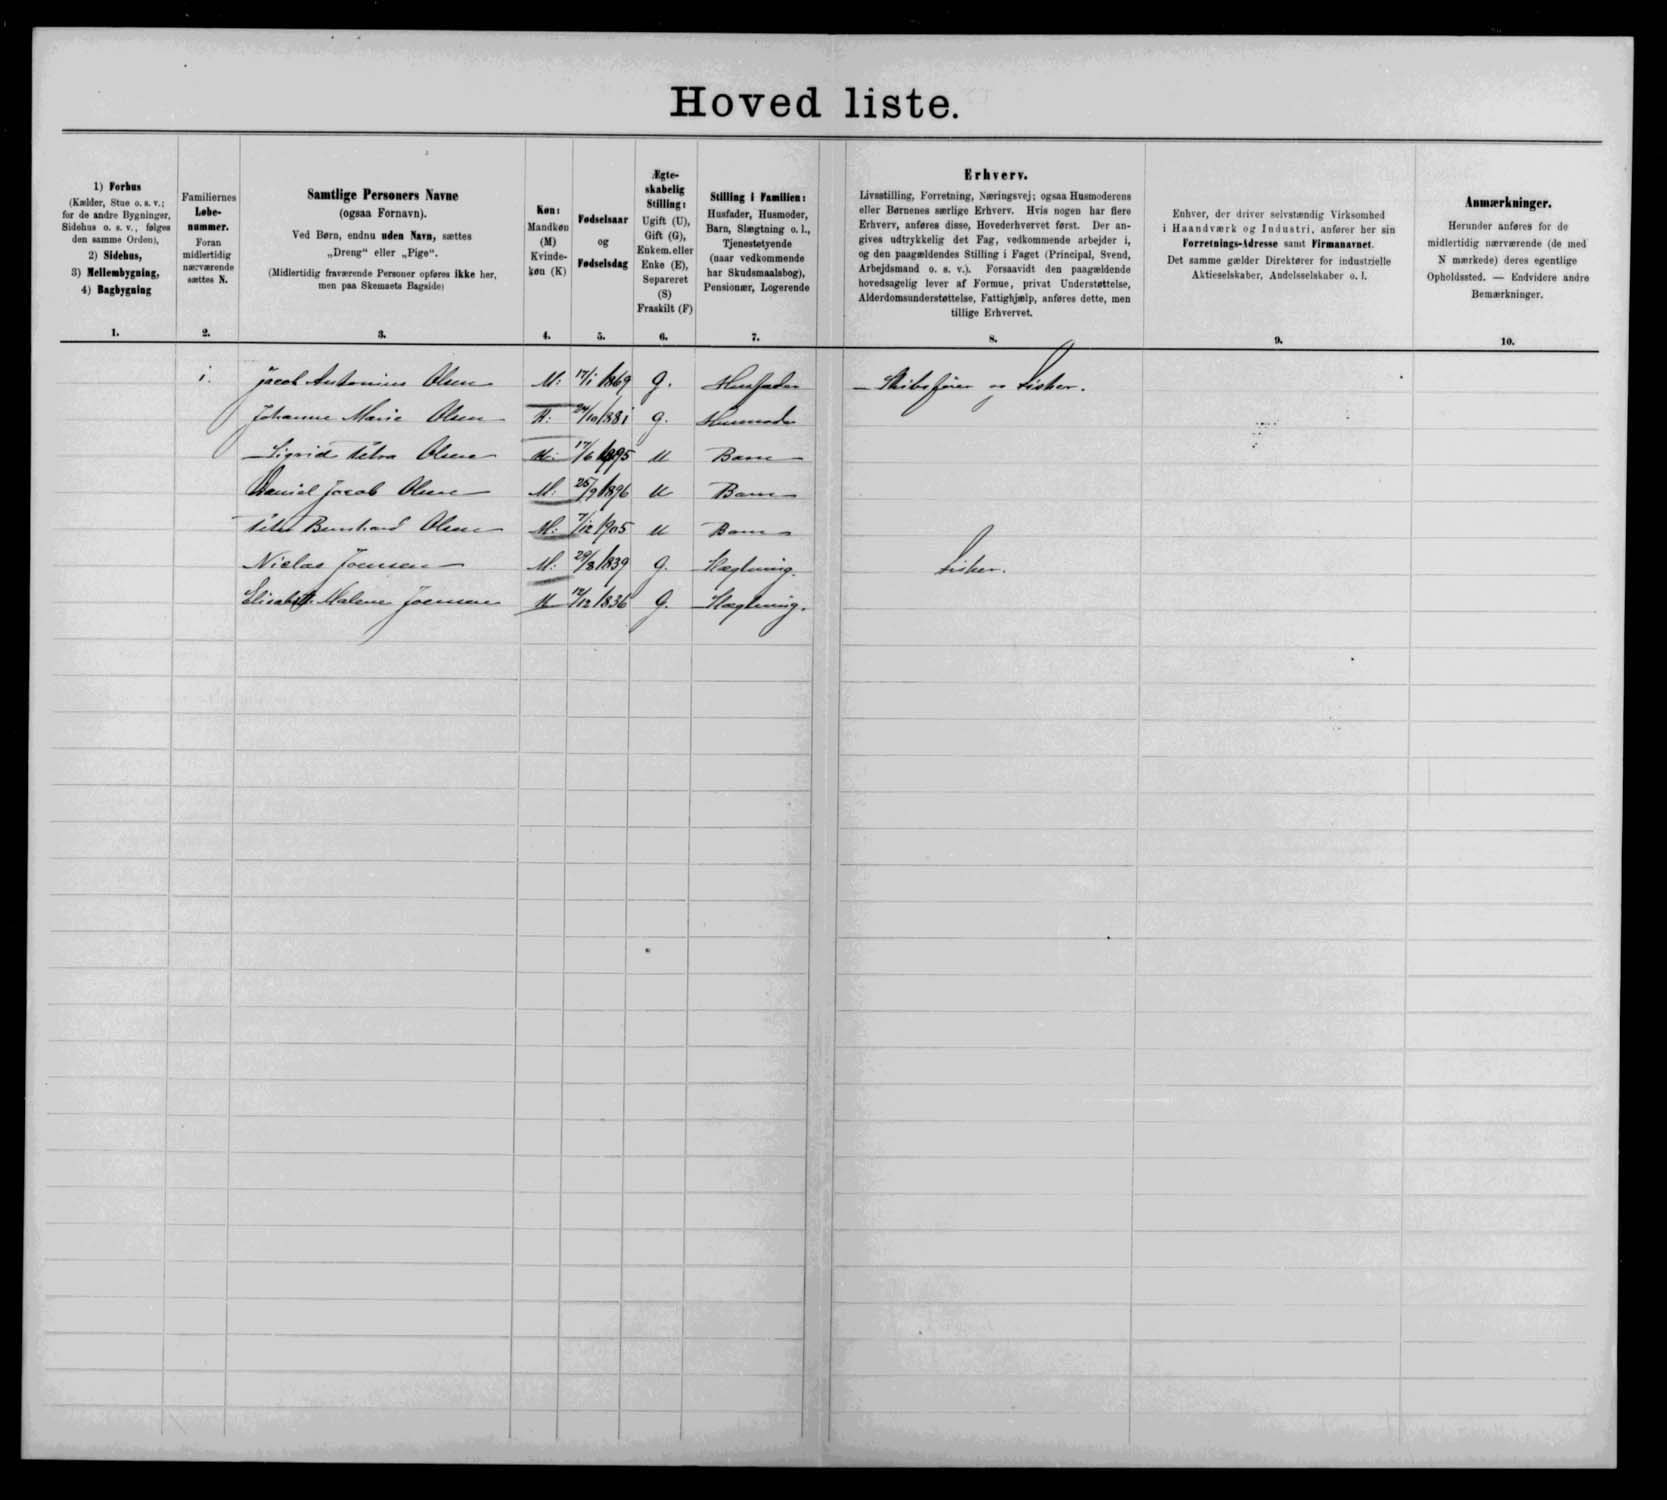 Hoved liste.
1) Forhus
(Kælder, Stue o. s. v.;
for de andre Bygninger,
Sidehus o. s. v., følges
den samme Orden),
2) Sidehus,
3) Mellembygning,
4) Bagbygning
1.
Familiernes
Løbe-
nummer.
Foran
midlertidig
nærværende
sættes N.
2.
Samtlige Personers Navne
(ogsaa Fornavn).
Ved Børn, endnu uden Navn, sættes
„Dreng“ eller „Pige“.
(Midlertidig fraværende Personer opføres ikke her,
men paa Skemaets Bagside)
3.
Køn:
Mandkøn
(M)
Kvinde-
køn (K)
4.
Fødselsaar
og
Fødselsdag
5.
Ægte-
skabelig
Stilling:
Ugift (U),
Gift (G),
Enkem. eller
Enke (E),
Separeret
(S)
Fraskilt (F)
6.
Stilling i Familien:
Husfader, Husmoder,
Barn, Slægtning o. l.,
Tjenestetyende
(naar vedkommende
har Skudsmaalsbog),
Pensionær, Logerende
7.
Erhverv.
Livsstilling, Forretning, Næringsvej; ogsaa Husmoderens
eller Børnenes særlige Erhverv. Hvis nogen har flere
Erhverv, anføres disse, Hovederhvervet først. Der an-
gives udtrykkelig det Fag, vedkommende arbejder i,
og den paagældendes Stilling i Faget (Principal, Svend,
Arbejdsmand o. s. v.). Forsaavidt den paagældende
hovedsagelig lever af Formue, privat Understøttelse,
Alderdomsunderstøttelse, Fattighjælp, anføres dette, men
tillige Erhvervet.
8.
Enhver, der driver selvstændig Virksomhed
i Haandværk og Industri, anfører her sin
Forretnings-Adresse samt Firmanavnet.
Det samme gælder Direktører for industrielle
Aktieselskaber, Andelsselskaber o. l.
9.
Anmærkninger.
Herunder anføres for de
midlertidig nærværende (de med
N mærkede) deres egentlige
Opholdssted. — Endvidere andre
Bemærkninger.
10.
1. Jacob Antonius Olsen M: 17/1 1869 G. Husfader Skibsfører og Fisker.
Johanne Marie Olsen K: 24/10 1881 G. Husmoder
Sigrid Petra Olsen K: 17/6 1895 U Barn
Daniel Jacob Olsen M: 25/9 1896 U Barn
Peter Bernhard Olsen M: 7/12 1905 U Barn
Niclas Joensen M: 29/3 1839 G. Slægtning. Fisker.
Elisabeth Malene Joensen K 12/12 1836 G. Slægtning.